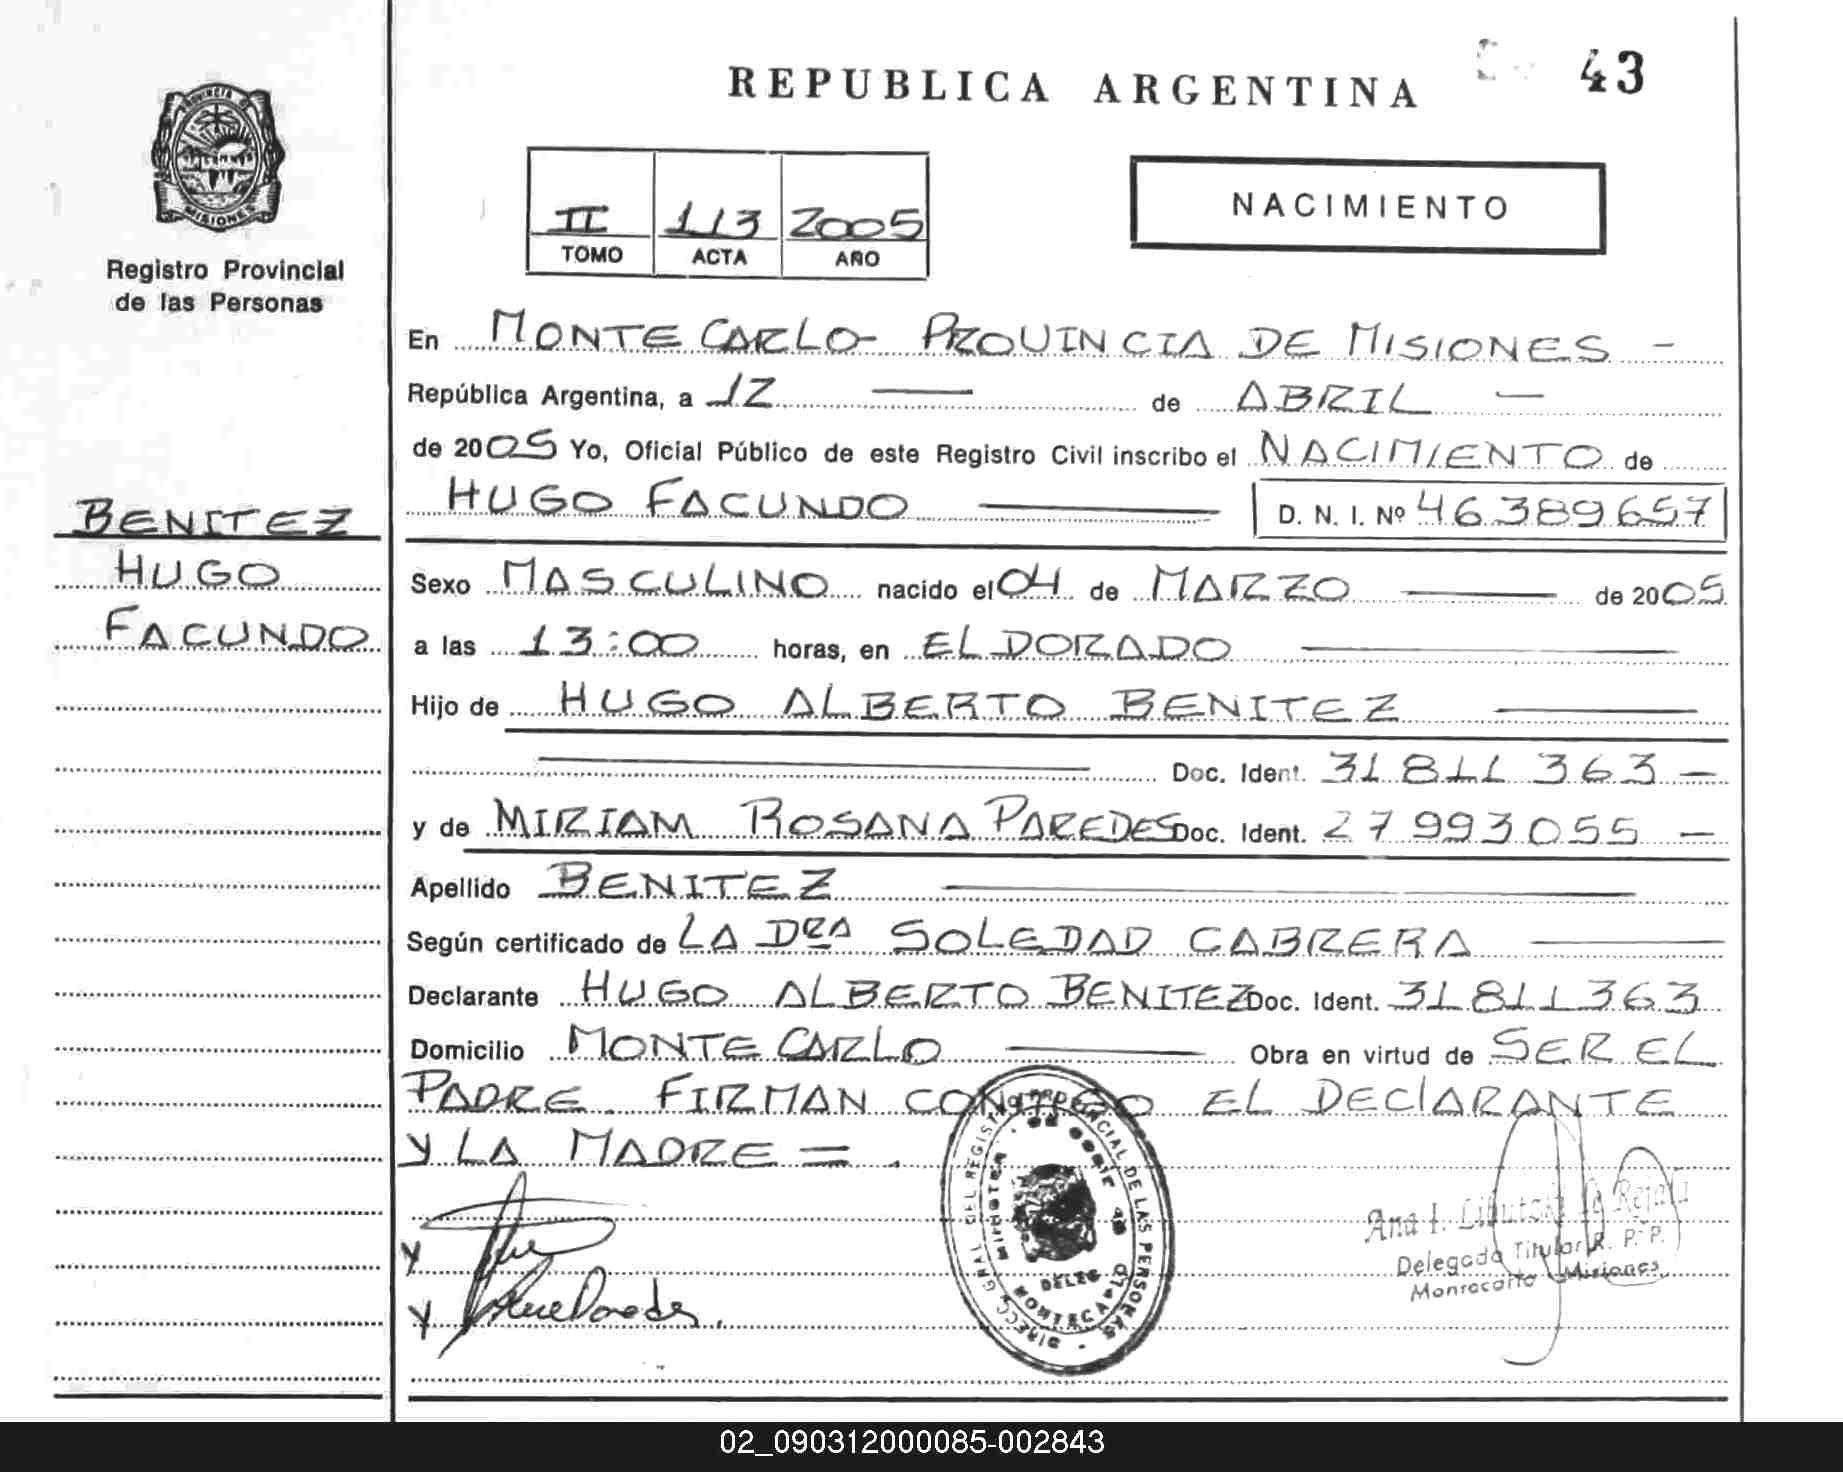 REPUBLICA ARGENTINA
43
PROVINCIA DE
MISIONES
Registro Provincial
de las Personas
II 113 2005
TOMO ACTA AÑO
NACIMIENTO
En MONTE CARLO- PROVINCIA DE MISIONES -
República Argentina, a 12 — de ABRIL —
de 2005 Yo, Oficial Público de este Registro Civil inscribo el NACIMIENTO de
HUGO FACUNDO — D. N. I. Nº 46389657
BENITEZ
HUGO
FACUNDO
Sexo MASCULINO nacido el 04 de MARZO — de 2005
a las 13:00 horas, en ELDORADO —
Hijo de HUGO ALBERTO BENITEZ —
— Doc. Ident. 31 811 363 —
y de MIRIAM ROSANA PAREDES Doc. Ident. 27 993 055 —
Apellido BENITEZ —
Según certificado de LA DRA SOLEDAD CABRERA —
Declarante HUGO ALBERTO BENITEZ Doc. Ident. 31 811 363
Domicilio MONTE CARLO — Obra en virtud de SER EL
PADRE. FIRMAN CONMIGO EL DEClARANTE
Y LA MADRE = .
DIRECC. GRAL. DEL REGISTRO PROVINCIAL DE LAS PERSONAS
DELEG
MONTECARLO
Ana I.
Delegada Titular R. P. P.
Montecarlo Misiones
Y
Y
02_090312000085-002843